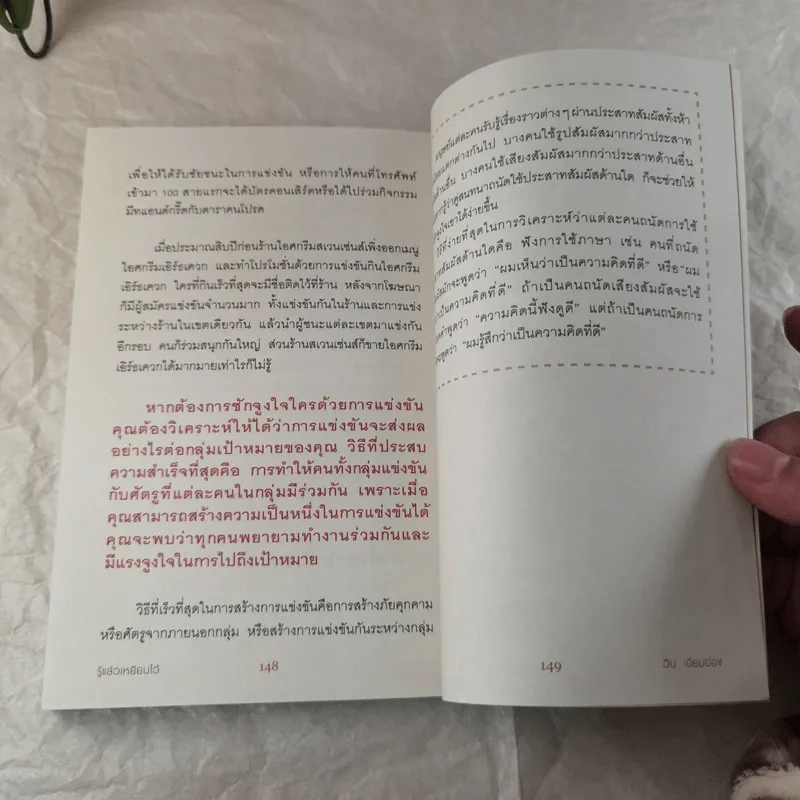 เพื่อให้ได้รับชัยชนะในการแข่งขัน หรือการให้คนที่โทรศัพท์
เข้ามา 100 สายแรกจะได้บัตรคอนเสิร์ตหรือได้ไปร่วมกิจกรรม
มีทแอนด์กรี๊ดกับดาราคนโปรด
เมื่อประมาณสิบปีก่อนร้านไอศกรีมสเวนเซ่นส์เพิ่งออกเมนู
ไอศกรีมเอิร์ธเควก และทำโปรโมชั่นด้วยการแข่งขันกินไอศกรีม
เอิร์ธเควก ใครที่กินเร็วที่สุดจะมีชื่อติดไว้ที่ร้าน หลังจากโฆษณา
ก็มีผู้สมัครแข่งขันจำนวนมาก ทั้งแข่งขันกันในร้านและการแข่ง
ระหว่างร้านในเขตเดียวกัน แล้วนำผู้ชนะแต่ละเขตมาแข่งกัน
อีกรอบ คนก็ร่วมสนุกกันใหญ่ ส่วนร้านสเวนเซ่นส์ก็ขายไอศกรีม
เอิร์ธเควกได้มากมายเท่าไรก็ไม่รู้
หากต้องการชักจูงใจใครด้วยการแข่งขัน
คุณต้องวิเคราะห์ให้ได้ว่าการแข่งขันจะส่งผล
อย่างไรต่อกลุ่มเป้าหมายของคุณ วิธีที่ประสบ
ความสำเร็จที่สุดคือ การทำให้คนทั้งกลุ่มแข่งขัน
กับศัตรูที่แต่ละคนในกลุ่มมีร่วมกัน เพราะเมื่อ
คุณสามารถสร้างความเป็นหนึ่งในการแข่งขันได้
คุณจะพบว่าทุกคนพยายามทำงานร่วมกันและ
มีแรงจูงใจในการไปถึงเป้าหมาย
วิธีที่เร็วที่สุดในการสร้างการแข่งขันคือการสร้างภัยคุกคาม
หรือศัตรูจากภายนอกกลุ่ม หรือสร้างการแข่งขันกันระหว่างกลุ่ม
รู้แล้วเหยียบไว้ 148
มนุษย์แต่ละคนรับรู้เรื่องราวต่างๆ ผ่านประสาทสัมผัสทั้งห้า
แตกต่างกันไป บางคนใช้รูปสัมผัสมากกว่าประสาท
ด้านอื่น บางคนใช้เสียงสัมผัสมากกว่าประสาทด้านอื่น
รู้ว่าคู่สนทนาถนัดใช้ประสาทสัมผัสด้านใด ก็จะช่วยให้
จูงใจเขาได้ง่ายขึ้น
วิธีที่ง่ายที่สุดในการวิเคราะห์ว่าแต่ละคนถนัดการใช้
สัมผัสด้านใดคือ ฟังการใช้ภาษา เช่น คนที่ถนัด
มักจะพูดว่า “ผมเห็นว่าเป็นความคิดที่ดี” หรือ “ผม
ว่าเป็นความคิดที่ดี” ถ้าเป็นคนถนัดเสียงสัมผัสจะใช้
คำพูดว่า “ความคิดนี้ฟังดูดี” แต่ถ้าเป็นคนถนัดการ
จะพูดว่า “ผมรู้สึกว่าเป็นความคิดที่ดี”
149 วิน เอี่ยมอ่อง